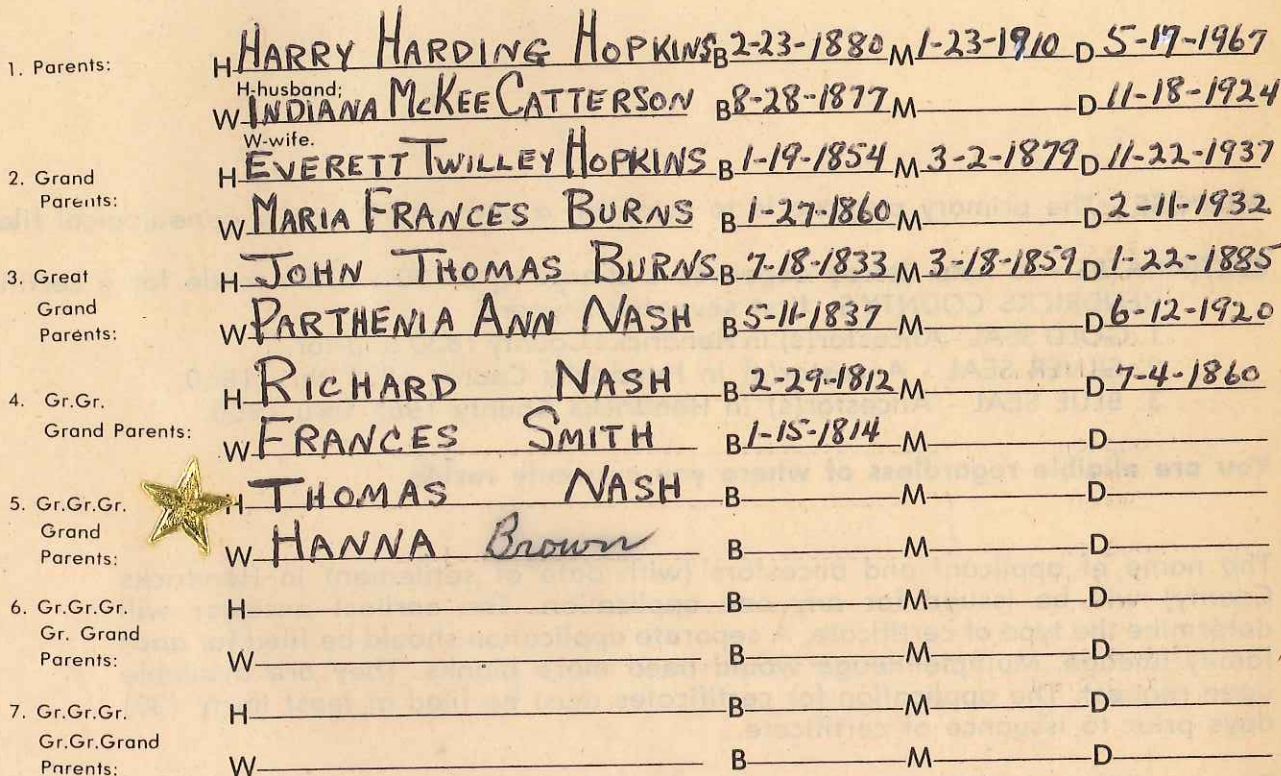 1. Parents: H HARRY HARDING HOPKINS B 2-23-1880 M 1-23-1910 D 5-17-1967
H-husband;
W INDIANA MCKEE CATTERSON B 8-28-1877 M D 11-18-1924
W-wife.
2. Grand Parents: H EVERETT TWILLEY HOPKINS B 1-19-1854 M 3-2-1879 D 11-22-1937
W MARIA FRANCES BURNS B 1-27-1860 M D 2-11-1932
3. Great Grand Parents: H JOHN THOMAS BURNS B 7-18-1833 M 3-18-1859 D 1-22-1885
W PARTHENIA ANN NASH B 5-11-1837 M D 6-12-1920
4. Gr.Gr. Grand Parents: H RICHARD NASH B 2-29-1812 M D 7-4-1860
W FRANCES SMITH B 1-15-1814 M D
5. Gr.Gr.Gr. Grand Parents: H THOMAS NASH B M D
W HANNA Brown B M D
6. Gr.Gr.Gr. Gr. Grand Parents: H B M D
W B M D
7. Gr.Gr.Gr. Gr.Gr.Grand Parents: H B M D
W B M D